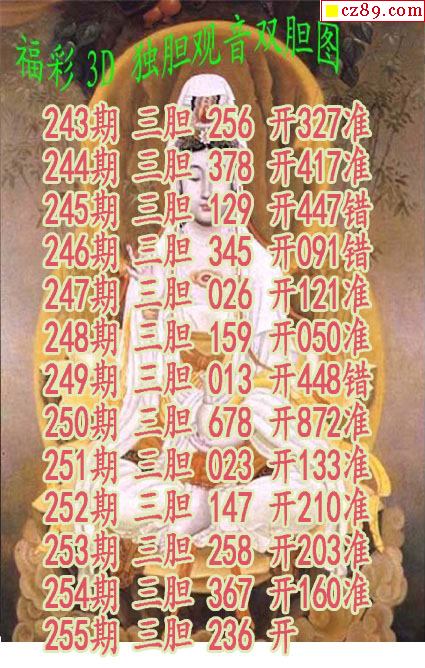 cz89.com
福彩 3D 独胆观音双胆图
243期 三胆 256 开327准
244期 三胆 378 开417准
245期 三胆 129 开447错
246期 三胆 345 开091错
247期 三胆 026 开121准
248期 三胆 159 开050准
249期 三胆 013 开448错
250期 三胆 678 开872准
251期 三胆 023 开133准
252期 三胆 147 开210准
253期 三胆 258 开203准
254期 三胆 367 开160准
255期 三胆 236 开